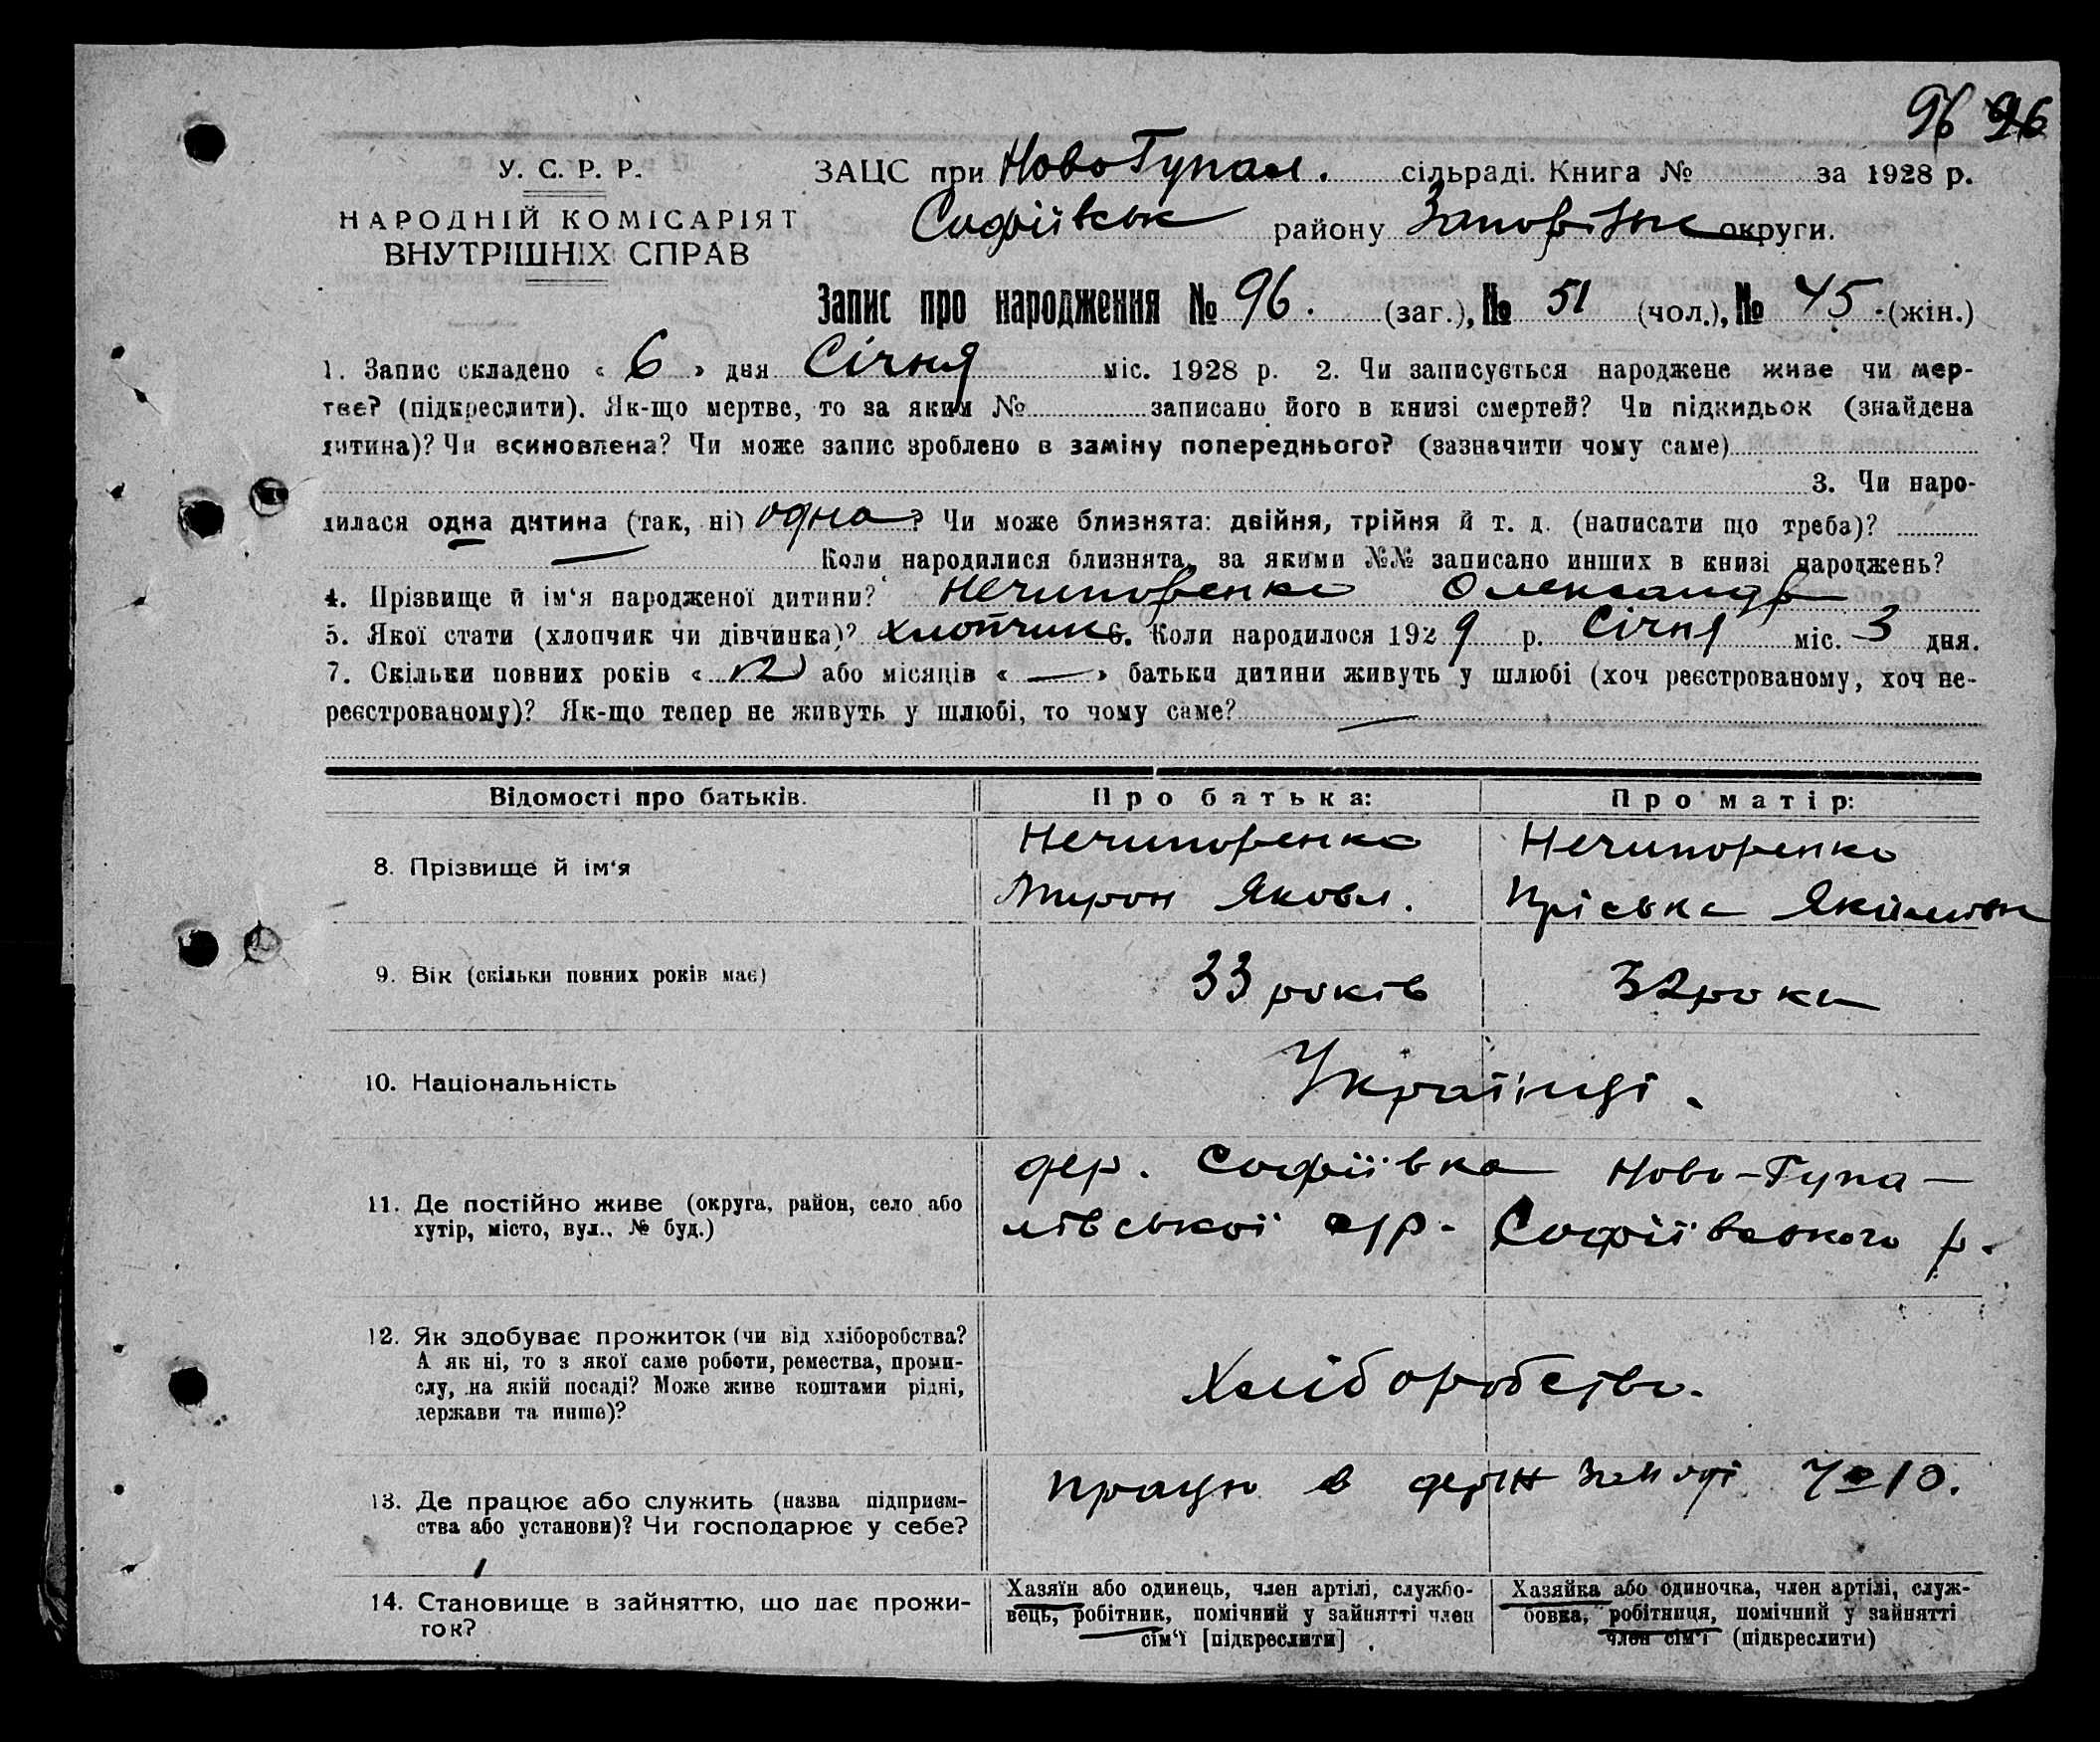 96 96
У. С. Р. Р.
НАРОДНІЙ КОМІСАРІЯТ
ВНУТРІШНІХ СПРАВ
ЗАЦС при Ново Гупал. сільраді. Книга № за 1928 р.
Софіївськ району округи.
Запис про народження № 96. (заг.), № 51 (чол.), № 45 (жін.)
1. Запис складено « 6 » дня Січня міс. 1928 р. 2. Чи записується народжене живе чи мер-
тве? (підкреслити). Як-що мертве, то за яким № записано його в книзі смертей? Чи підкидьок (знайдена
дитина)? Чи всиновлена? Чи може запис зроблено в заміну попереднього? (зазначити чому саме)
3. Чи наро-
дилася одна дитина (так, ні) одна? Чи може близнята: двійня, трійня й т. д. (написати що треба)?
Коли народилися близнята, за якими №№ записано инших в книзі народжень?
4. Прізвище й ім‘я народженої дитини? Нечипоренко Олександр
5. Якої стати (хлопчик чи дівчинка)? хлопчик 6. Коли народилося 1929 р. Січня міс. 3 дня.
7. Скільки повних років « 12 » або місяців « — » батьки дитини живуть у шлюбі (хоч реєстрованому, хоч не-
реєстрованому)? Як-що тепер не живуть у шлюбі, то чому саме? —
Відомості про батьків. Про батька: Про матір:
8. Прізвище й ім‘я
Нечипоренко
Мирон Яковл.
Нечипоренко
Пріська Якимовн
9. Вік (скільки повних років має) 33 років 32 роки
10. Національність Українці.
11. Де постійно живе (округа, район, село або
хутір, місто, вул., № буд.)
дер. Софіївка Ново-Гупа-
лівської с/р. Софіївського р.
12. Як здобуває прожиток (чи від хліборобства?
А як ні, то з якої саме роботи, ремества, проми-
слу, на якій посаді? Може живе коштами рідні,
держави та инше)?
Хліборобство.
13. Де працює або служить (назва підприєм-
ства або установи)? Чи господарює у себе?
працю в держ
14. Становище в зайняттю, що дає прожи-
ток?
Хазяїн або одинець, член артілі, службо-
вець, робітник, помічний у зайнятті член
сім‘ї [підкреслити]
Хазяйка або одиночка, член артілі, служ-
бовка, робітниця, помічний у зайнятті
член сім‘ї (підкреслити)